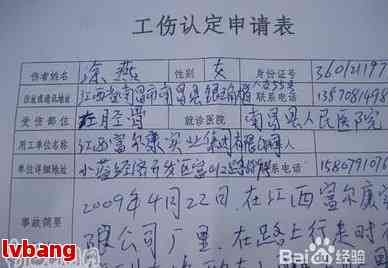 工伤认定申请表
伤者姓名 涂燕 性别 女 身份证号 360121197
住址或通讯地址 江西省南昌市南昌县 联系电话 1357081498
受伤部位 左胫骨 就诊医院 南昌县人民医院
用工单位名称 江西富尔康实业集团有限公司 联系人
单位详细地址 小蓝经济开发区富山 联系电话 158079101
事故简要 2009年4月22日，在江西富尔康实
限公司厂里，在路上行走时
lvbang
Bai 百度经验